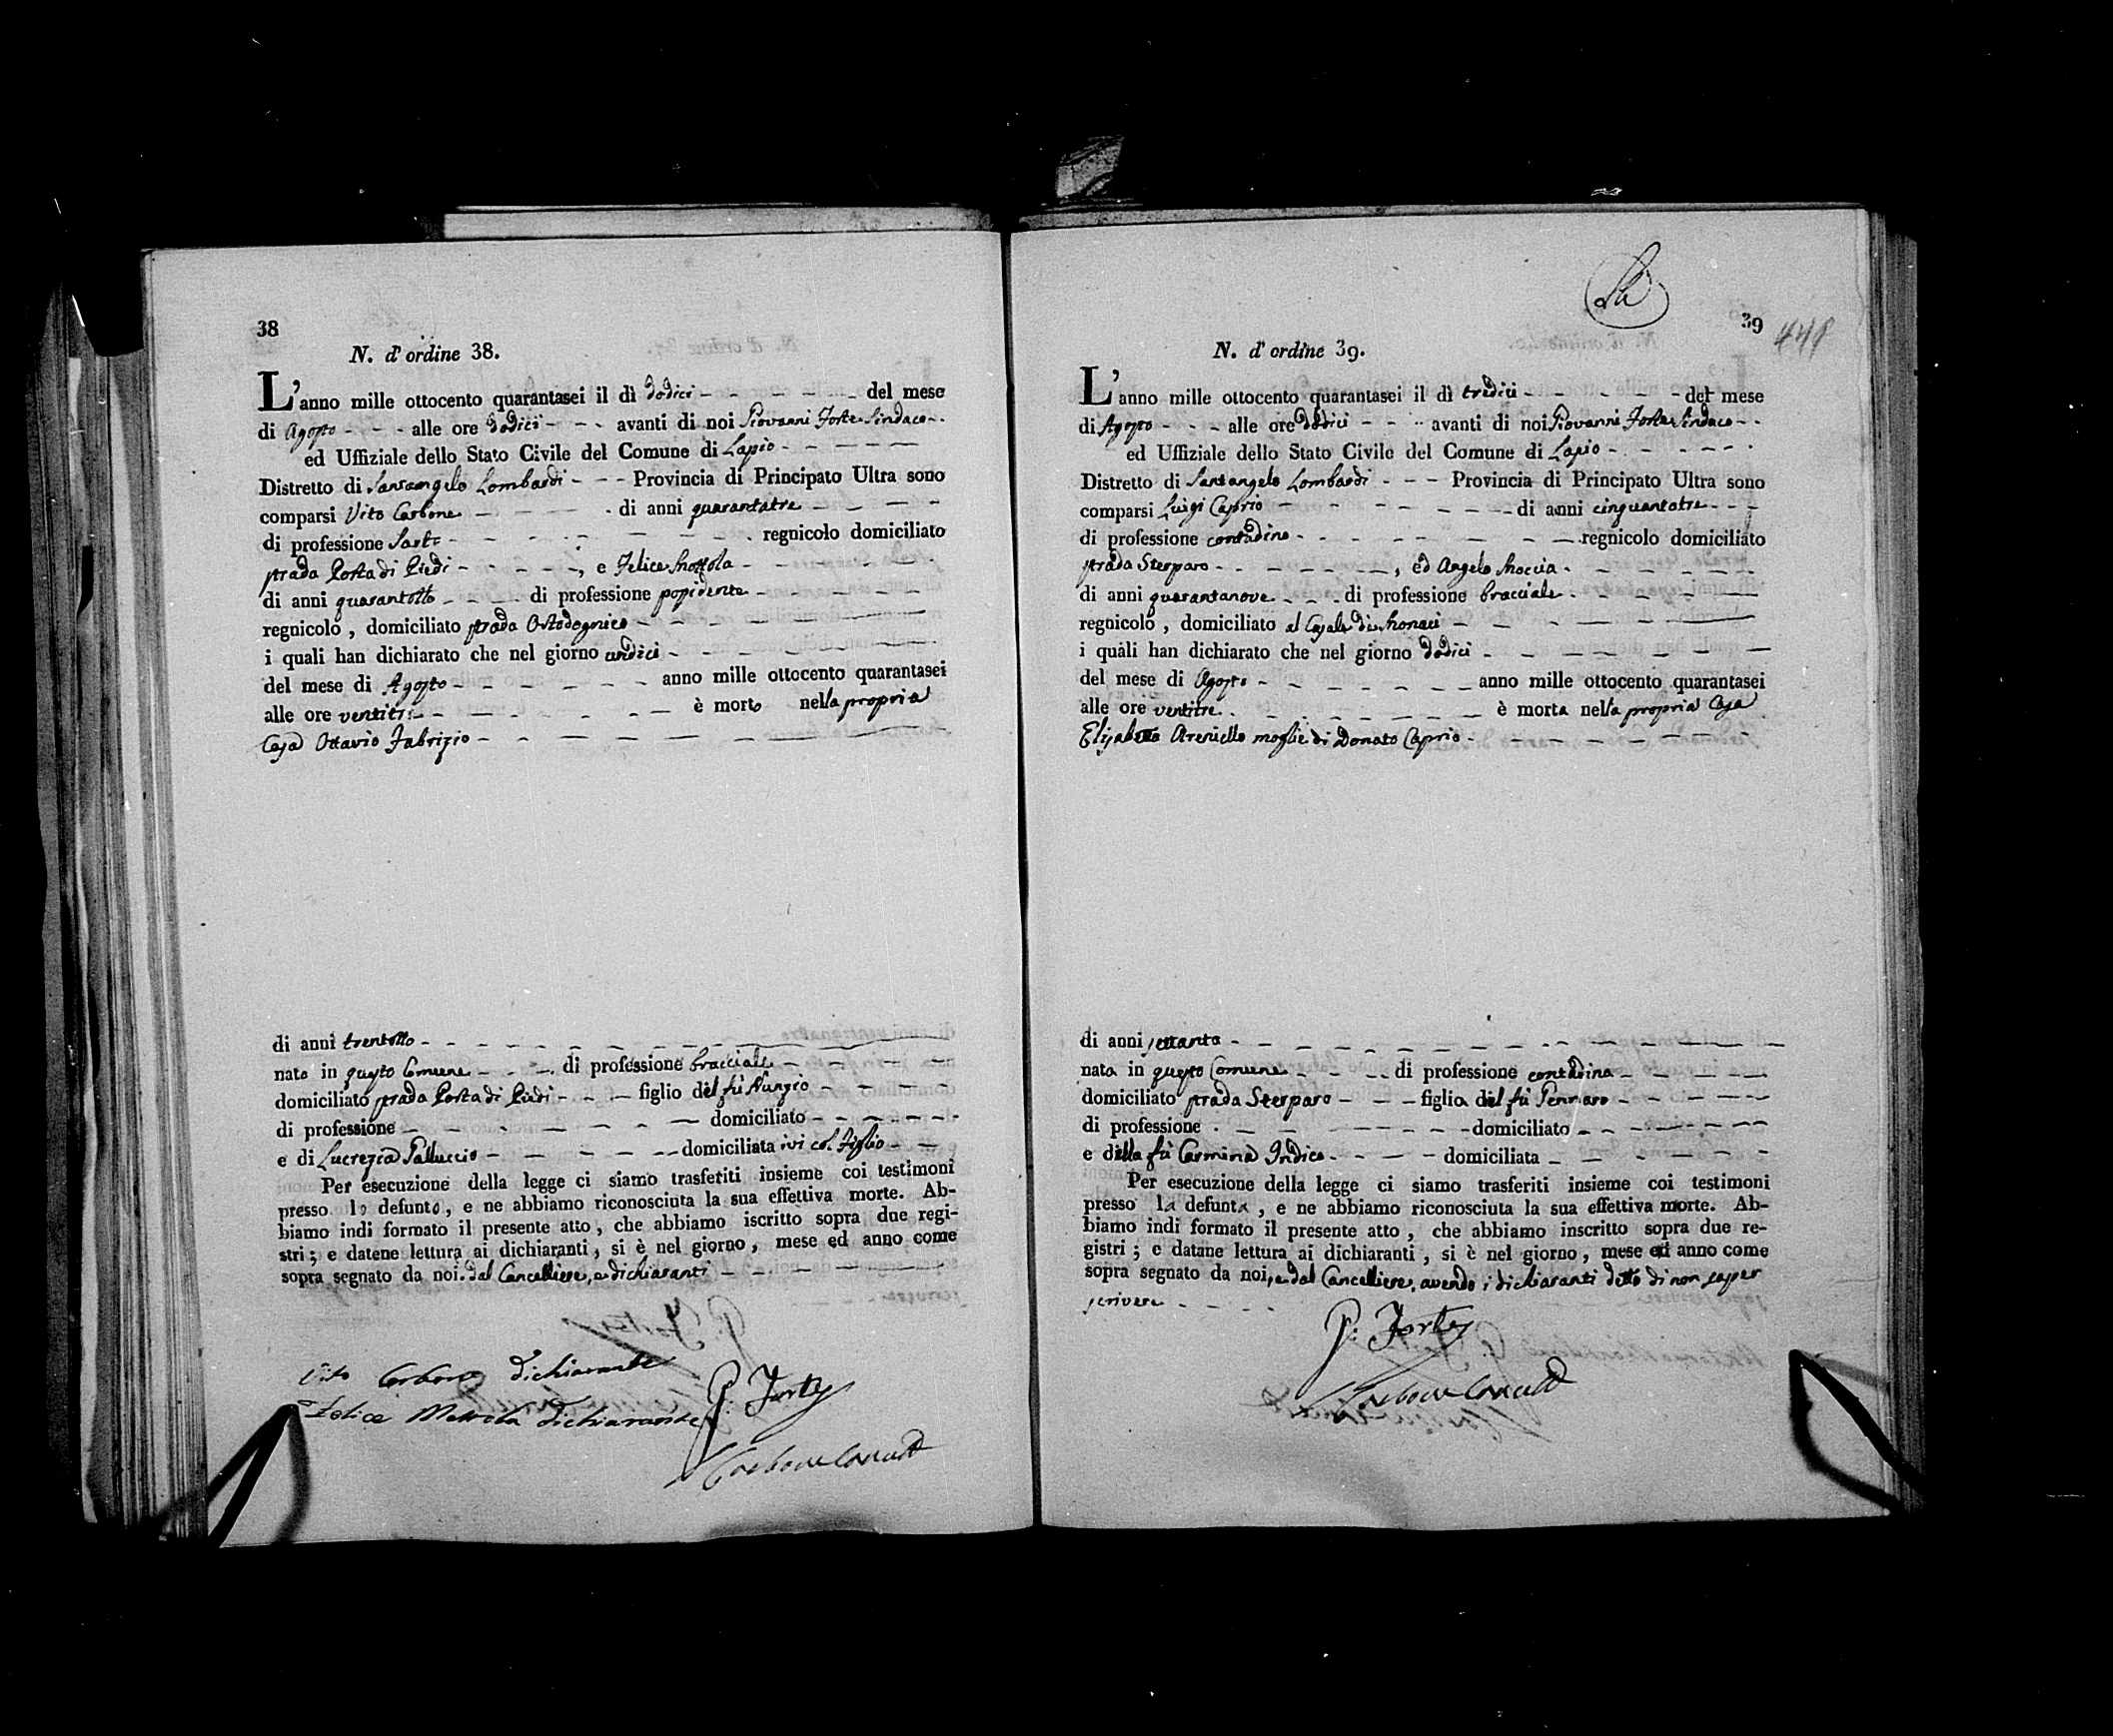 38
N. d'ordine 38.
L'anno mille ottocento quarantasei il dì dodici del mese
di Agosto alle ore dodici avanti di noi Giovanni Forte Sindaco
ed Uffiziale dello Stato Civile del Comune di Lapio
Distretto di Santangelo Lombardi Provincia di Principato Ultra sono
comparsi Vito Carbone di anni quarantatre
di professione Sarto regnicolo domiciliato
strada Porta di Piedi, e Felice
di anni quarantotto di professione possidente
regnicolo, domiciliato strada
i quali han dichiarato che nel giorno undici
del mese di Agosto anno mille ottocento quarantasei
alle ore ventitre è morto nella propria
Casa Ottavio Fabrizio
di anni trentotto
nato in questo Comune di professione bracciale
domiciliato strada Porta di Piedi figlio del fù Nunzio
di professione domiciliato
e di Lucrezia Palluccio domiciliata ivi col figlio
Per esecuzione della legge ci siamo trasferiti insieme coi testimoni
presso lo defunto, e ne abbiamo riconosciuta la sua effettiva morte. Ab-
biamo indi formato il presente atto, che abbiamo iscritto sopra due regi-
stri; e datene lettura ai dichiaranti, si è nel giorno, mese ed anno come
sopra segnato da noi, dal Cancelliere, e dichiaranti
Vito Carbone dichiarante
Felice dichiarante
G. Forte
Carbone
39
N. d'ordine 39.
L'anno mille ottocento quarantasei il dì tredici del mese
di Agosto alle ore dodici avanti di noi Giovanni Forte Sindaco
ed Uffiziale dello Stato Civile del Comune di Lapio
Distretto di Santangelo Lombardi Provincia di Principato Ultra sono
comparsi Luigi Caprio di anni cinquantatre
di professione contadino regnicolo domiciliato
strada Sterparo, ed Angelo
di anni quarantanove di professione bracciale
regnicolo, domiciliato al Casale di
i quali han dichiarato che nel giorno dodici
del mese di Agosto anno mille ottocento quarantasei
alle ore ventitre è morta nella propria Casa
Elisabetta Areniello moglie di Donato Caprio
di anni settanta
nata in questo Comune di professione contadina
domiciliato strada Sterparo figlia del fù Gennaro
di professione domiciliato
e della fù Carmina Indico domiciliata
Per esecuzione della legge ci siamo trasferiti insieme coi testimoni
presso la defunta, e ne abbiamo riconosciuta la sua effettiva morte. Ab-
biamo indi formato il presente atto, che abbiamo inscritto sopra due re-
gistri; e datane lettura ai dichiaranti, si è nel giorno, mese ed anno come
sopra segnato da noi, e dal Cancelliere, avendo i dichiaranti detto di non saper
scrivere
G. Forte
Carbone